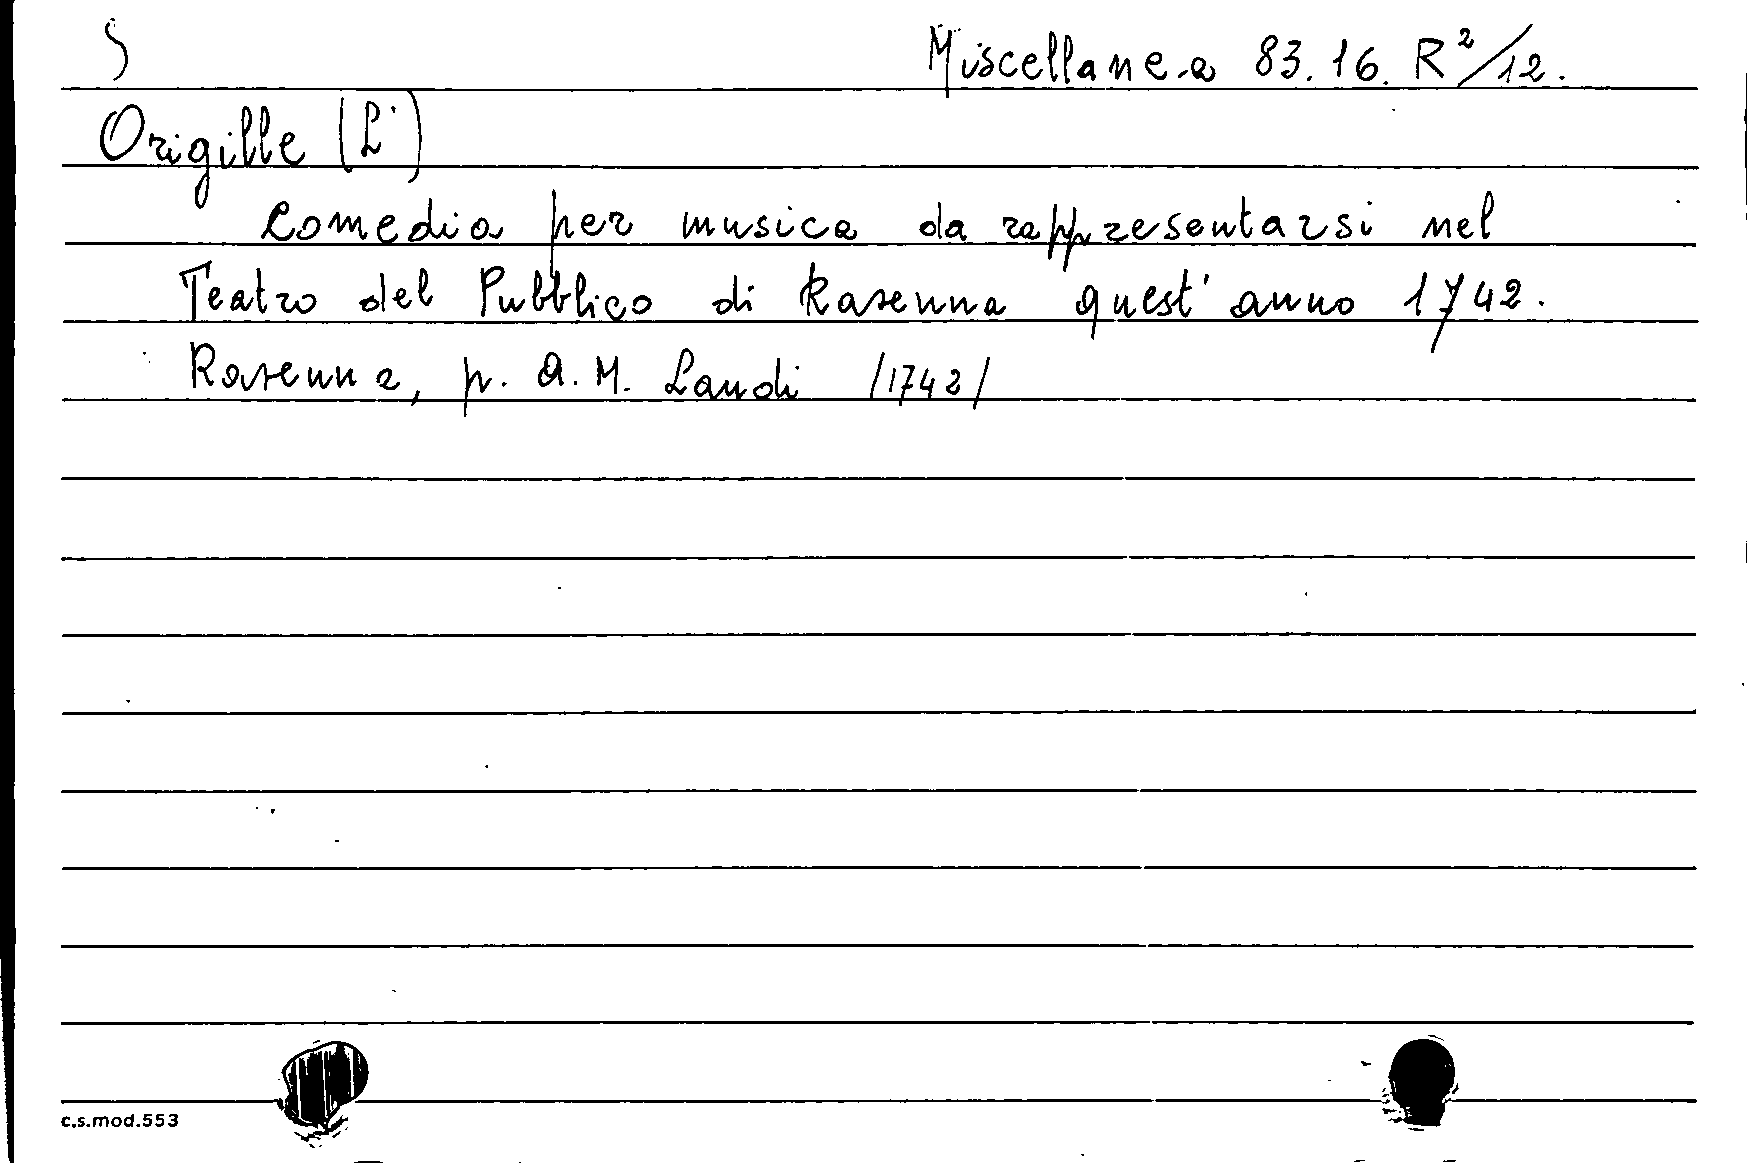 S Miscellanea 83.16. R²/12.
Origille (L')
Comedia per musica da rappresentarsi nel
Teatro del Pubblico di Ravenna quest'anno 1742.
Ravenna, p. A. M. Landi /1742/
c.s.mod.553